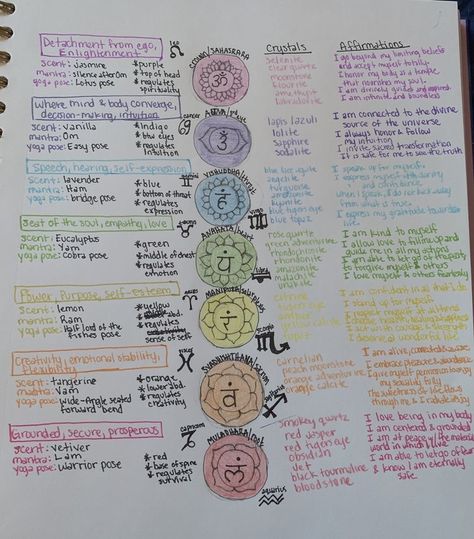 Crystals
Affirmations
Detachment from ego,
Enlightenment
scent: jasmine
mantra: silence after Om
yoga pose: Lotus pose
*purple
*top of head
*regulates
spirituality
CROWN/SAHASRARA
ॐ
selenite
clear quartz
moonstone
fluorite
amethyst
labradolite
I go beyond my limiting beliefs
and accept myself totally.
I honor my body as a temple
that nourishes my soul.
I am divinely guided and inspired.
I am infinite and boundless
where mind & body converge,
decision-making, intuition
scent: vanilla
mantra: Om
yoga pose: Easy pose
*indigo
*btw eyes
*regulates
intuition
cancer
lapis lazuli
iolite
sapphire
sodalite
I am connected to the divine
source of the universe
I always honor & follow
my intuition
I invite sacred transformation
It is safe for me to see the truth
Speech, hearing, self-expression
scent: lavender
mantra: Ham
yoga pose: bridge pose
*blue
*bottom of throat
*regulates
expression
हं
blue lace agate
angelite
turquoise
amazonite
kyanite
blue tigers eye
blue topaz
I speak up for myself.
I express myself with clarity
and confidence.
when I speak, I do not back away
from what is true.
I express my gratitude towards
life.
Seat of the soul, empathy, love
scent: Eucalyptus
mantra: Yam
yoga pose: cobra pose
*green
*middle of chest
*regulates
emotion
ANAHATA/heart
यं
rose quartz
green adventurine
rhodochrosite
rhodonite
amazonite
malachite
unakite
I am kind to myself
I allow love to fill me up and
guide me in all my actions
I am able to let go of the past,
to forgive myself & others
I love myself & others fearlessly
Power, Purpose, self-esteem
scent: lemon
mantra: Ram
yoga pose: Half lord of the
fishes pose
*yellow
*regulates
sense of self
रं
citrine
tigers eye
yellow calcite
I am confident in all that I do
I stand up for myself
I deserve a wonderful life
Creativity, emotional stability,
Flexibility
scent: tangerine
mantra: Vam
yoga pose: Wide-Angle seated
forward bend
*orange
*lower abd.
*regulates
creativity
pisces
वं
carnelian
peach moonstone
orange adventurine
orange calcite
I am alive, connected & aware
I embrace pleasure & abundance
I give myself permission to enjoy
my sexuality fully
Grounded, secure, prosperous
scent: vetiver
mantra: Lam
yoga pose: warrior pose
*red
*base of spine
*regulates
survival
capricorn
MULADHARA/root
लं
aquarius
smokey quartz
red jasper
red tigers eye
obsidian
Jet
black tourmaline
bloodstone
I love being in my body
I am centered & grounded
I am at peace w/ the material
world in which I live
I am able to let go of fear
& know I am eternally
safe.